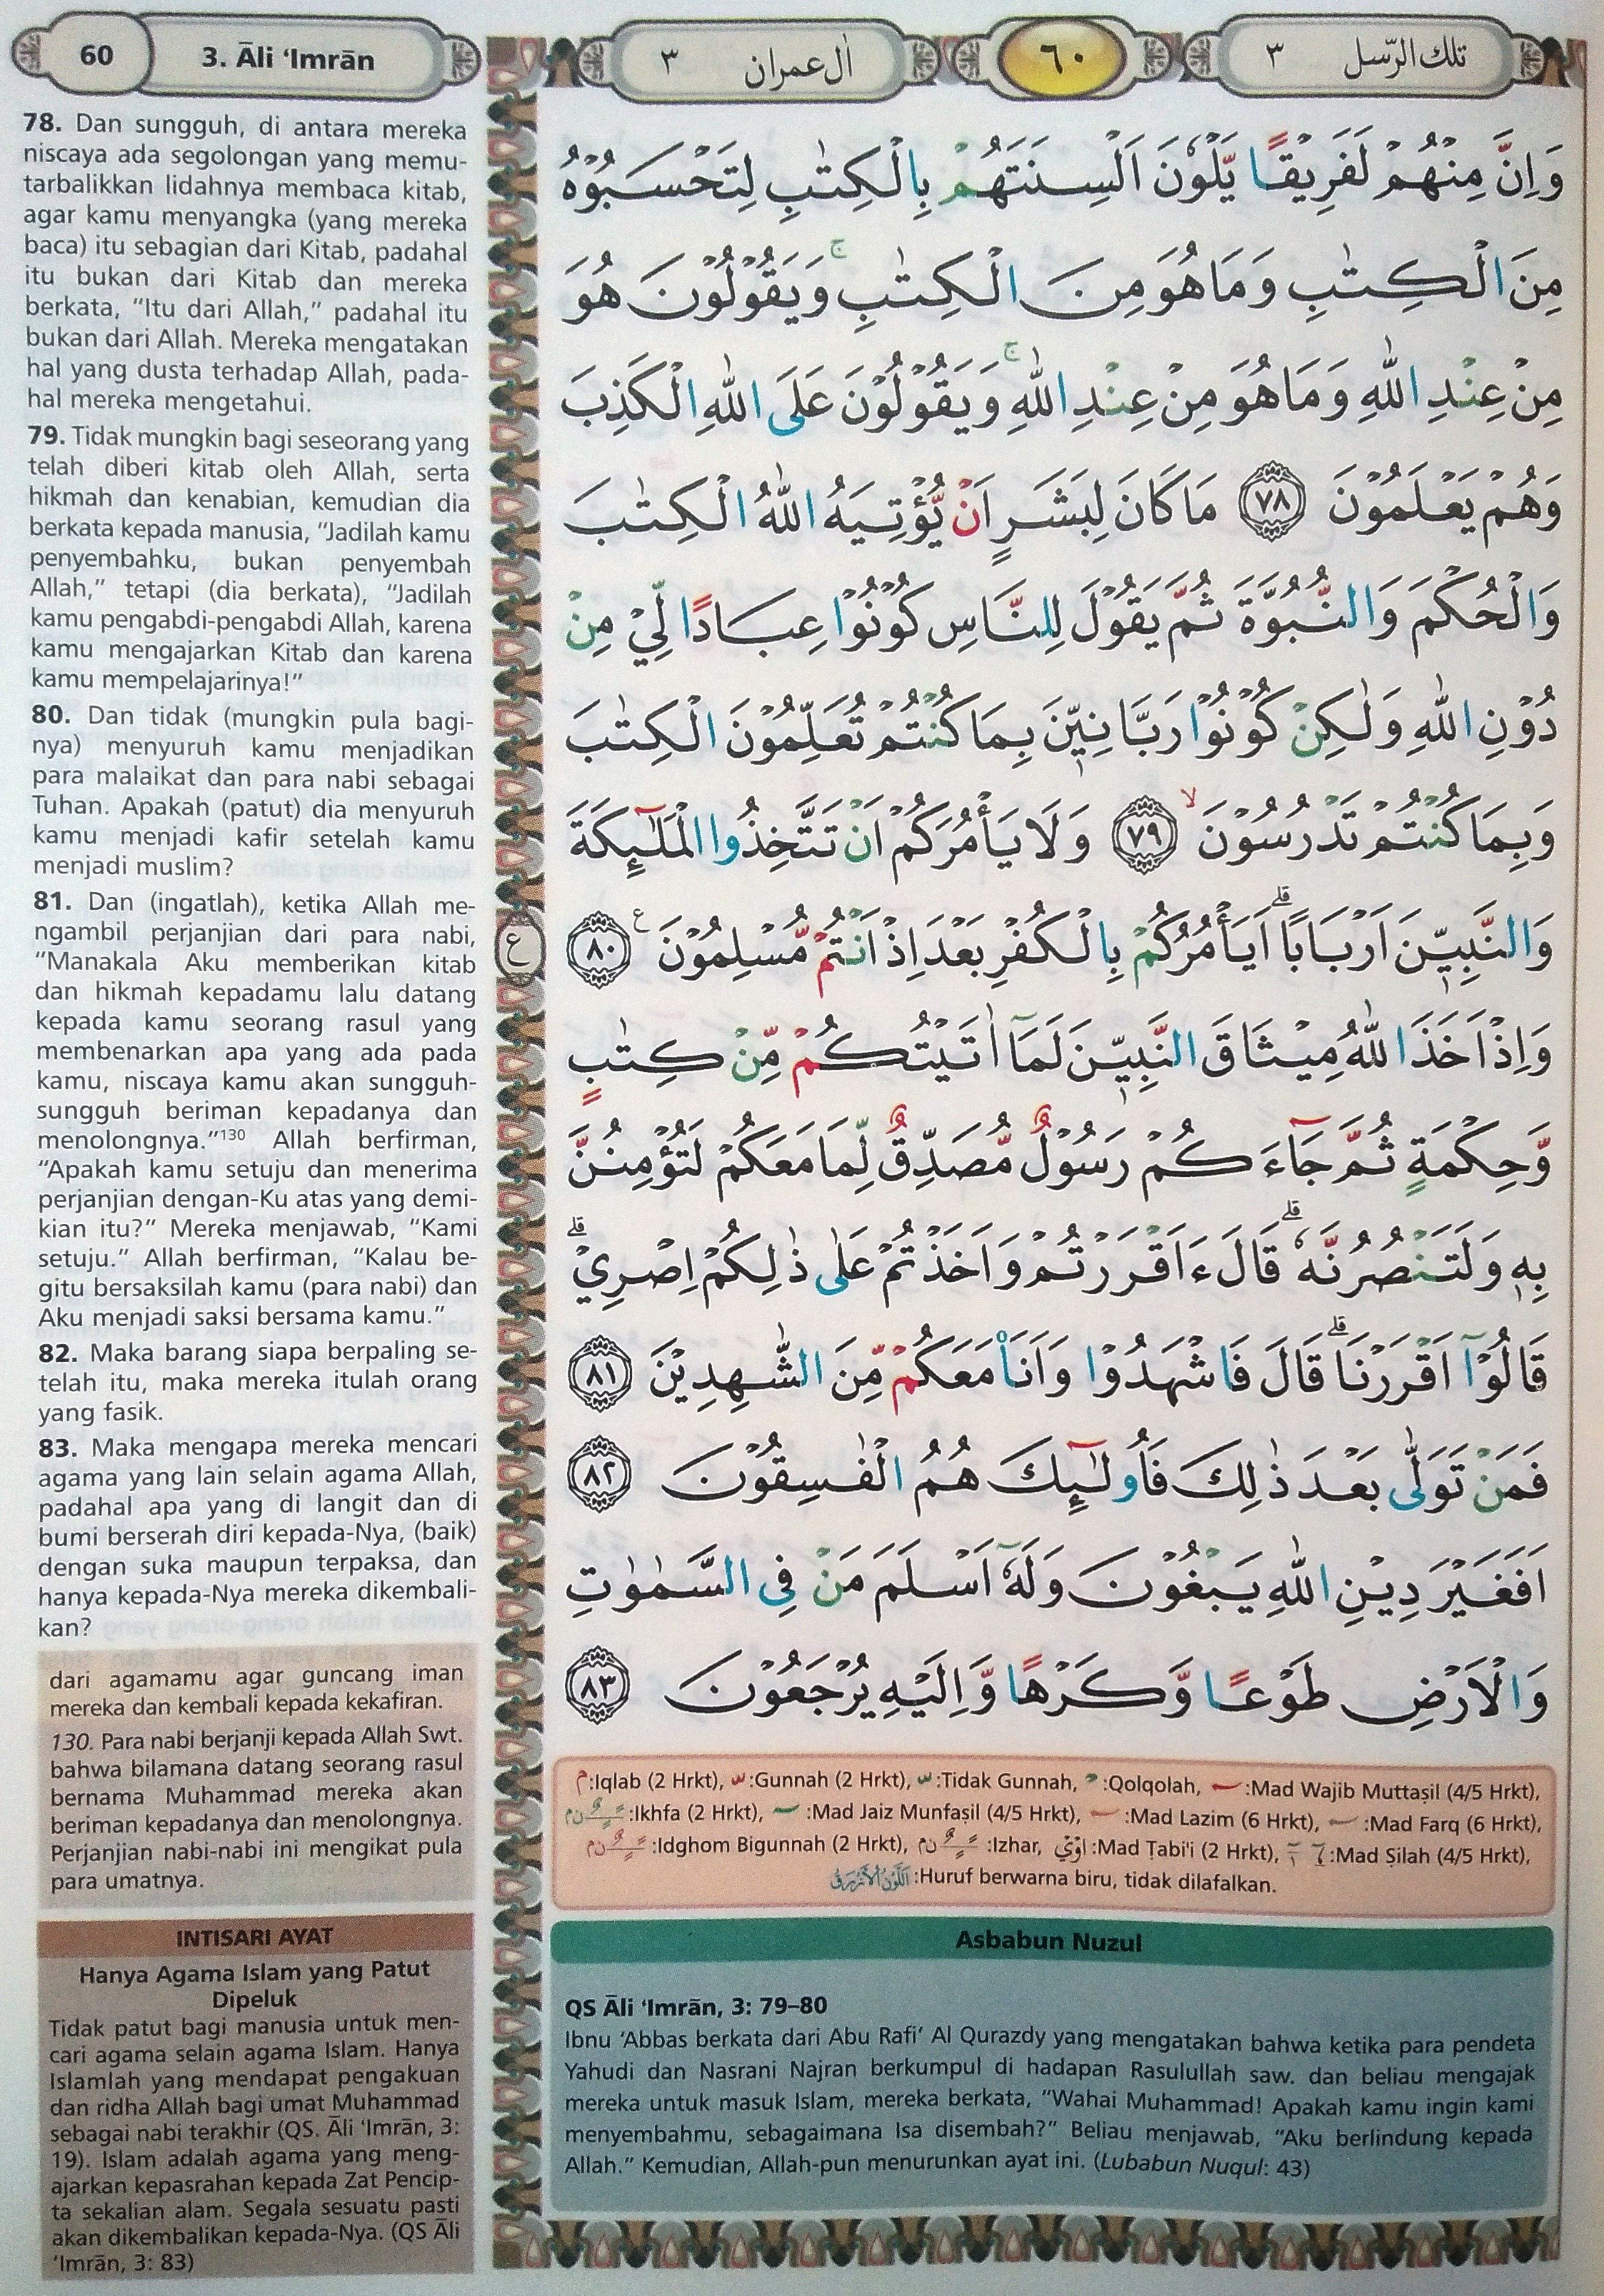 60
3. Āli ‘Imrān
اٰل عمران ٣
٦٠
تلك الرّسل ٣
78. Dan sungguh, di antara mereka
niscaya ada segolongan yang memu-
tarbalikkan lidahnya membaca kitab,
agar kamu menyangka (yang mereka
baca) itu sebagian dari Kitab, padahal
itu bukan dari Kitab dan mereka
berkata, “Itu dari Allah,” padahal itu
bukan dari Allah. Mereka mengatakan
hal yang dusta terhadap Allah, pada-
hal mereka mengetahui.
79. Tidak mungkin bagi seseorang yang
telah diberi kitab oleh Allah, serta
hikmah dan kenabian, kemudian dia
berkata kepada manusia, “Jadilah kamu
penyembahku, bukan penyembah
Allah,” tetapi (dia berkata), “Jadilah
kamu pengabdi-pengabdi Allah, karena
kamu mengajarkan Kitab dan karena
kamu mempelajarinya!”
80. Dan tidak (mungkin pula bagi-
nya) menyuruh kamu menjadikan
para malaikat dan para nabi sebagai
Tuhan. Apakah (patut) dia menyuruh
kamu menjadi kafir setelah kamu
menjadi muslim?
81. Dan (ingatlah), ketika Allah me-
ngambil perjanjian dari para nabi,
“Manakala Aku memberikan kitab
dan hikmah kepadamu lalu datang
kepada kamu seorang rasul yang
membenarkan apa yang ada pada
kamu, niscaya kamu akan sungguh-
sungguh beriman kepadanya dan
menolongnya.”130 Allah berfirman,
“Apakah kamu setuju dan menerima
perjanjian dengan-Ku atas yang demi-
kian itu?” Mereka menjawab, “Kami
setuju.” Allah berfirman, “Kalau be-
gitu bersaksilah kamu (para nabi) dan
Aku menjadi saksi bersama kamu.”
82. Maka barang siapa berpaling se-
telah itu, maka mereka itulah orang
yang fasik.
83. Maka mengapa mereka mencari
agama yang lain selain agama Allah,
padahal apa yang di langit dan di
bumi berserah diri kepada-Nya, (baik)
dengan suka maupun terpaksa, dan
hanya kepada-Nya mereka dikembali-
kan?
dari agamamu agar guncang iman
mereka dan kembali kepada kekafiran.
130. Para nabi berjanji kepada Allah Swt.
bahwa bilamana datang seorang rasul
bernama Muhammad mereka akan
beriman kepadanya dan menolongnya.
Perjanjian nabi-nabi ini mengikat pula
para umatnya.
INTISARI AYAT
Hanya Agama Islam yang Patut
Dipeluk
Tidak patut bagi manusia untuk men-
cari agama selain agama Islam. Hanya
Islamlah yang mendapat pengakuan
dan ridha Allah bagi umat Muhammad
sebagai nabi terakhir (QS. Āli ‘Imrān, 3:
19). Islam adalah agama yang meng-
ajarkan kepasrahan kepada Zat Pencip-
ta sekalian alam. Segala sesuatu pasti
akan dikembalikan kepada-Nya. (QS Āli
‘Imrān, 3: 83)
وَاِنَّ مِنْهُمْ لَفَرِيْقًا يَّلْوٗنَ اَلْسِنَتَهُمْ بِالْكِتٰبِ لِتَحْسَبُوْهُ
مِنَ الْكِتٰبِ وَمَا هُوَ مِنَ الْكِتٰبِۚ وَيَقُوْلُوْنَ هُوَ
مِنْ عِنْدِ اللّٰهِ وَمَا هُوَ مِنْ عِنْدِ اللّٰهِۚ وَيَقُوْلُوْنَ عَلَى اللّٰهِ الْكَذِبَ
وَهُمْ يَعْلَمُوْنَ ٧٨ مَا كَانَ لِبَشَرٍ اَنْ يُّؤْتِيَهُ اللّٰهُ الْكِتٰبَ
وَالْحُكْمَ وَالنُّبُوَّةَ ثُمَّ يَقُوْلَ لِلنَّاسِ كُوْنُوْا عِبَادًا لِّيْ مِنْ
دُوْنِ اللّٰهِ وَلٰكِنْ كُوْنُوْا رَبَّانِيّٖنَ بِمَا كُنْتُمْ تُعَلِّمُوْنَ الْكِتٰبَ
وَبِمَا كُنْتُمْ تَدْرُسُوْنَۙ ٧٩ وَلَا يَأْمُرَكُمْ اَنْ تَتَّخِذُوا الْمَلٰۤىِٕكَةَ
وَالنَّبِيّٖنَ اَرْبَابًاۗ اَيَأْمُرُكُمْ بِالْكُفْرِ بَعْدَ اِذْ اَنْتُمْ مُّسْلِمُوْنَ ࣖ ٨٠
ع
وَاِذْ اَخَذَ اللّٰهُ مِيْثَاقَ النَّبِيّٖنَ لَمَآ اٰتَيْتُكُمْ مِّنْ كِتٰبٍ
وَّحِكْمَةٍ ثُمَّ جَاۤءَكُمْ رَسُوْلٌ مُّصَدِّقٌ لِّمَا مَعَكُمْ لَتُؤْمِنُنَّ
بِهٖ وَلَتَنْصُرُنَّهٗۗ قَالَ ءَاَقْرَرْتُمْ وَاَخَذْتُمْ عَلٰى ذٰلِكُمْ اِصْرِيْۗ
قَالُوْٓا اَقْرَرْنَاۗ قَالَ فَاشْهَدُوْا وَاَنَا۠ مَعَكُمْ مِّنَ الشّٰهِدِيْنَ ٨١
فَمَنْ تَوَلّٰى بَعْدَ ذٰلِكَ فَاُولٰۤىِٕكَ هُمُ الْفٰسِقُوْنَ ٨٢
اَفَغَيْرَ دِيْنِ اللّٰهِ يَبْغُوْنَ وَلَهٗٓ اَسْلَمَ مَنْ فِى السَّمٰوٰتِ
وَالْاَرْضِ طَوْعًا وَّكَرْهًا وَّاِلَيْهِ يُرْجَعُوْنَ ٨٣
م:Iqlab (2 Hrkt), :Gunnah (2 Hrkt), :Tidak Gunnah, :Qolqolah, :Mad Wajib Muttaṣil (4/5 Hrkt),
:Ikhfa (2 Hrkt), :Mad Jaiz Munfaṣil (4/5 Hrkt), :Mad Lazim (6 Hrkt), :Mad Farq (6 Hrkt),
:Idghom Bigunnah (2 Hrkt), :Izhar, :Mad Ṭabi'i (2 Hrkt), :Mad Ṣilah (4/5 Hrkt),
:Huruf berwarna biru, tidak dilafalkan.
Asbabun Nuzul
QS Āli ‘Imrān, 3: 79–80
Ibnu ‘Abbas berkata dari Abu Rafi’ Al Qurazdy yang mengatakan bahwa ketika para pendeta
Yahudi dan Nasrani Najran berkumpul di hadapan Rasulullah saw. dan beliau mengajak
mereka untuk masuk Islam, mereka berkata, “Wahai Muhammad! Apakah kamu ingin kami
menyembahmu, sebagaimana Isa disembah?” Beliau menjawab, “Aku berlindung kepada
Allah.” Kemudian, Allah-pun menurunkan ayat ini. (Lubabun Nuqul: 43)